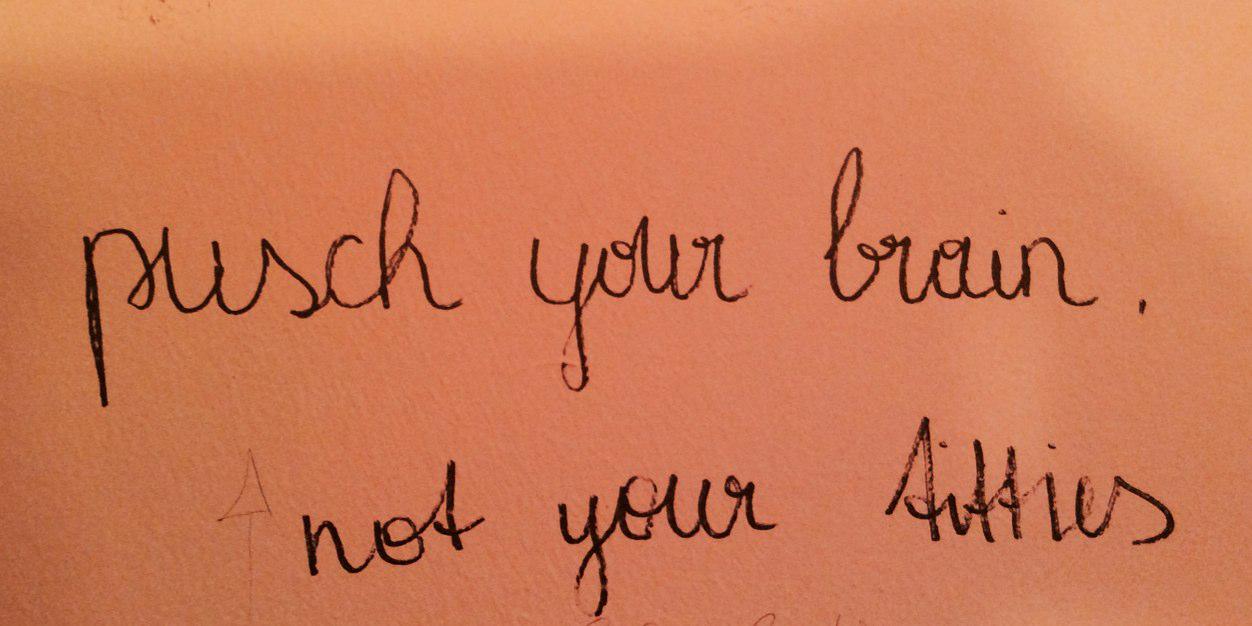 pusch your brain.
not your titties